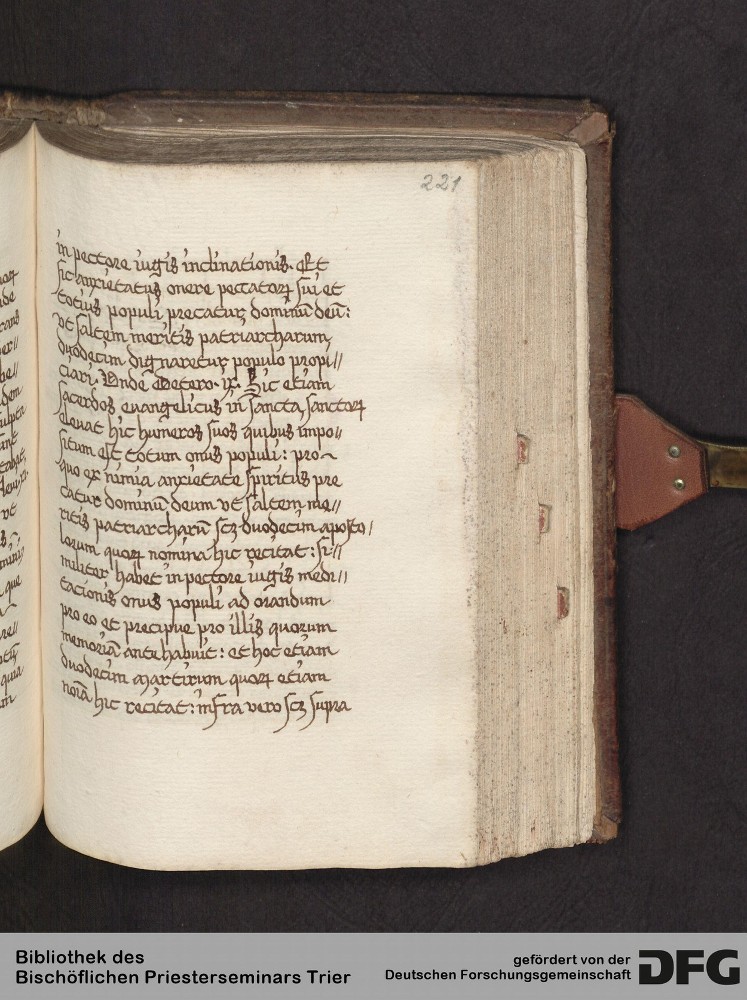 221
in pectore iugis inclinationis. Et
sic anxietatus onere peccatoꝝ sui et
totius populi precatur dominū deū:
vt saltem meritis patriarcharum
duodecim dignaretur populo propi//
ciari. Vnde ix. Sic etiam
sacerdos euangelicus in sancta sanctoꝝ
eleuat hic humeros suos quibus impo//
situm est totum onus populi: pro
quo ex nimia anxietate spiritus pre
catur dominū deum vt saltem me//
ritis patriarcharū scꝫ duodecim aposto/
lorum quoꝝ nomina hic recitat: si//
militer habet in pectore iugis medi//
tacionis onus populi ad orandum
pro eo et precipue pro illis quorum
memoriā ante habuit: et hoc etiam
duodecim martirum quoꝝ etiam
noīa hic recitat: infra vero scꝫ supra
Bibliothek des
Bischöflichen Priesterseminars Trier
gefördert von der
Deutschen Forschungsgemeinschaft
DFG